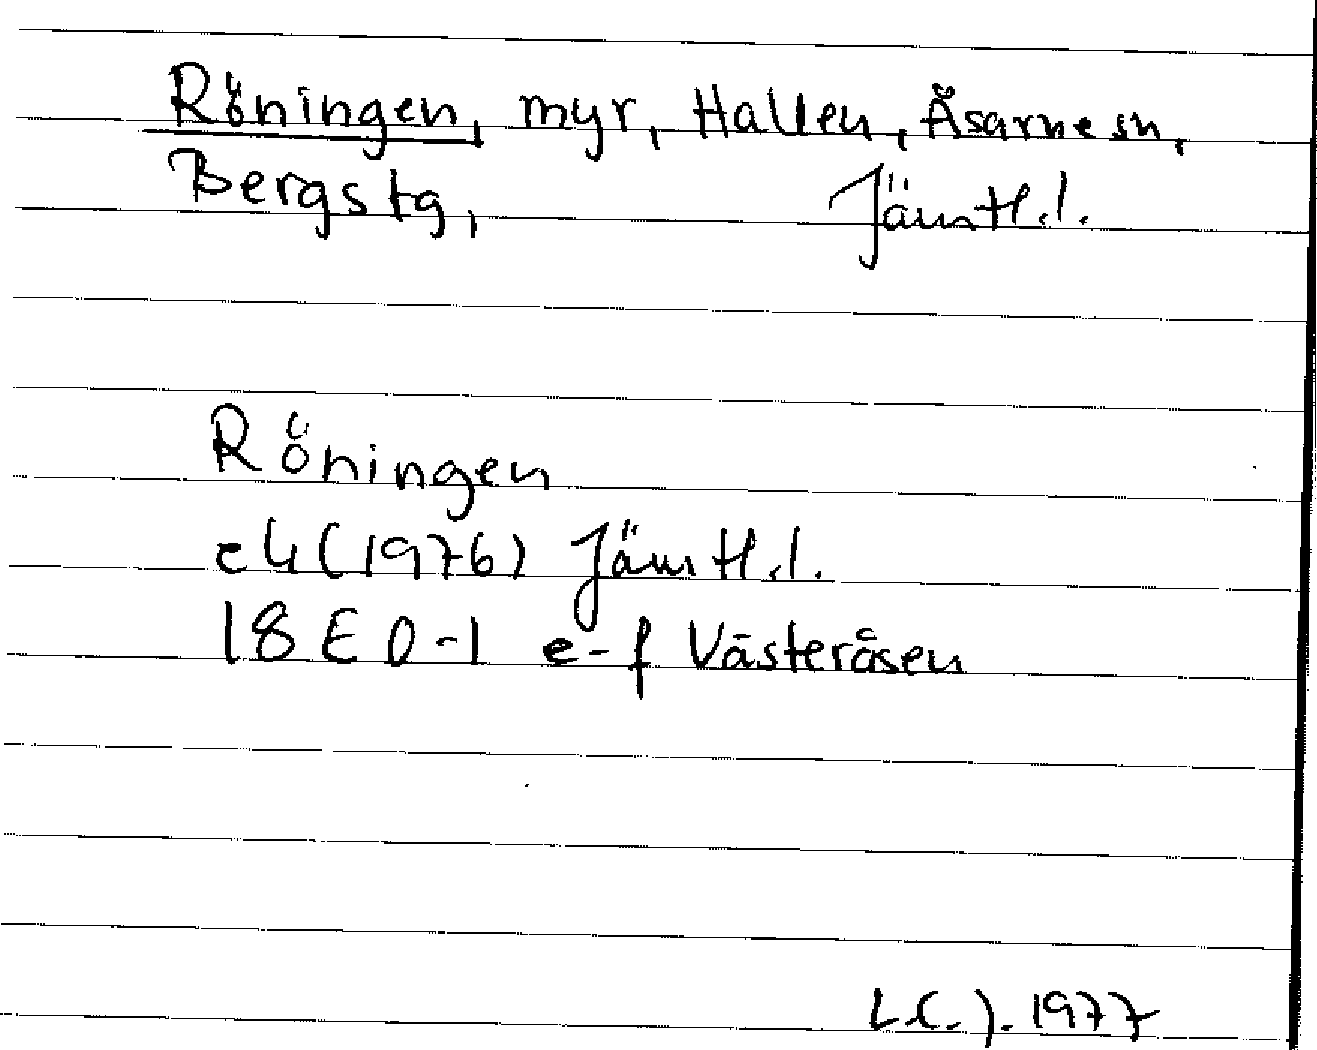 Röningen, myr, Hallen, Åsarne sn,
Bergs tg, Jämtl. l.
Röningen
e4 (1976) Jämtl. l.
18E 0-1 e-f Västeråsen
L.C. J. 1977